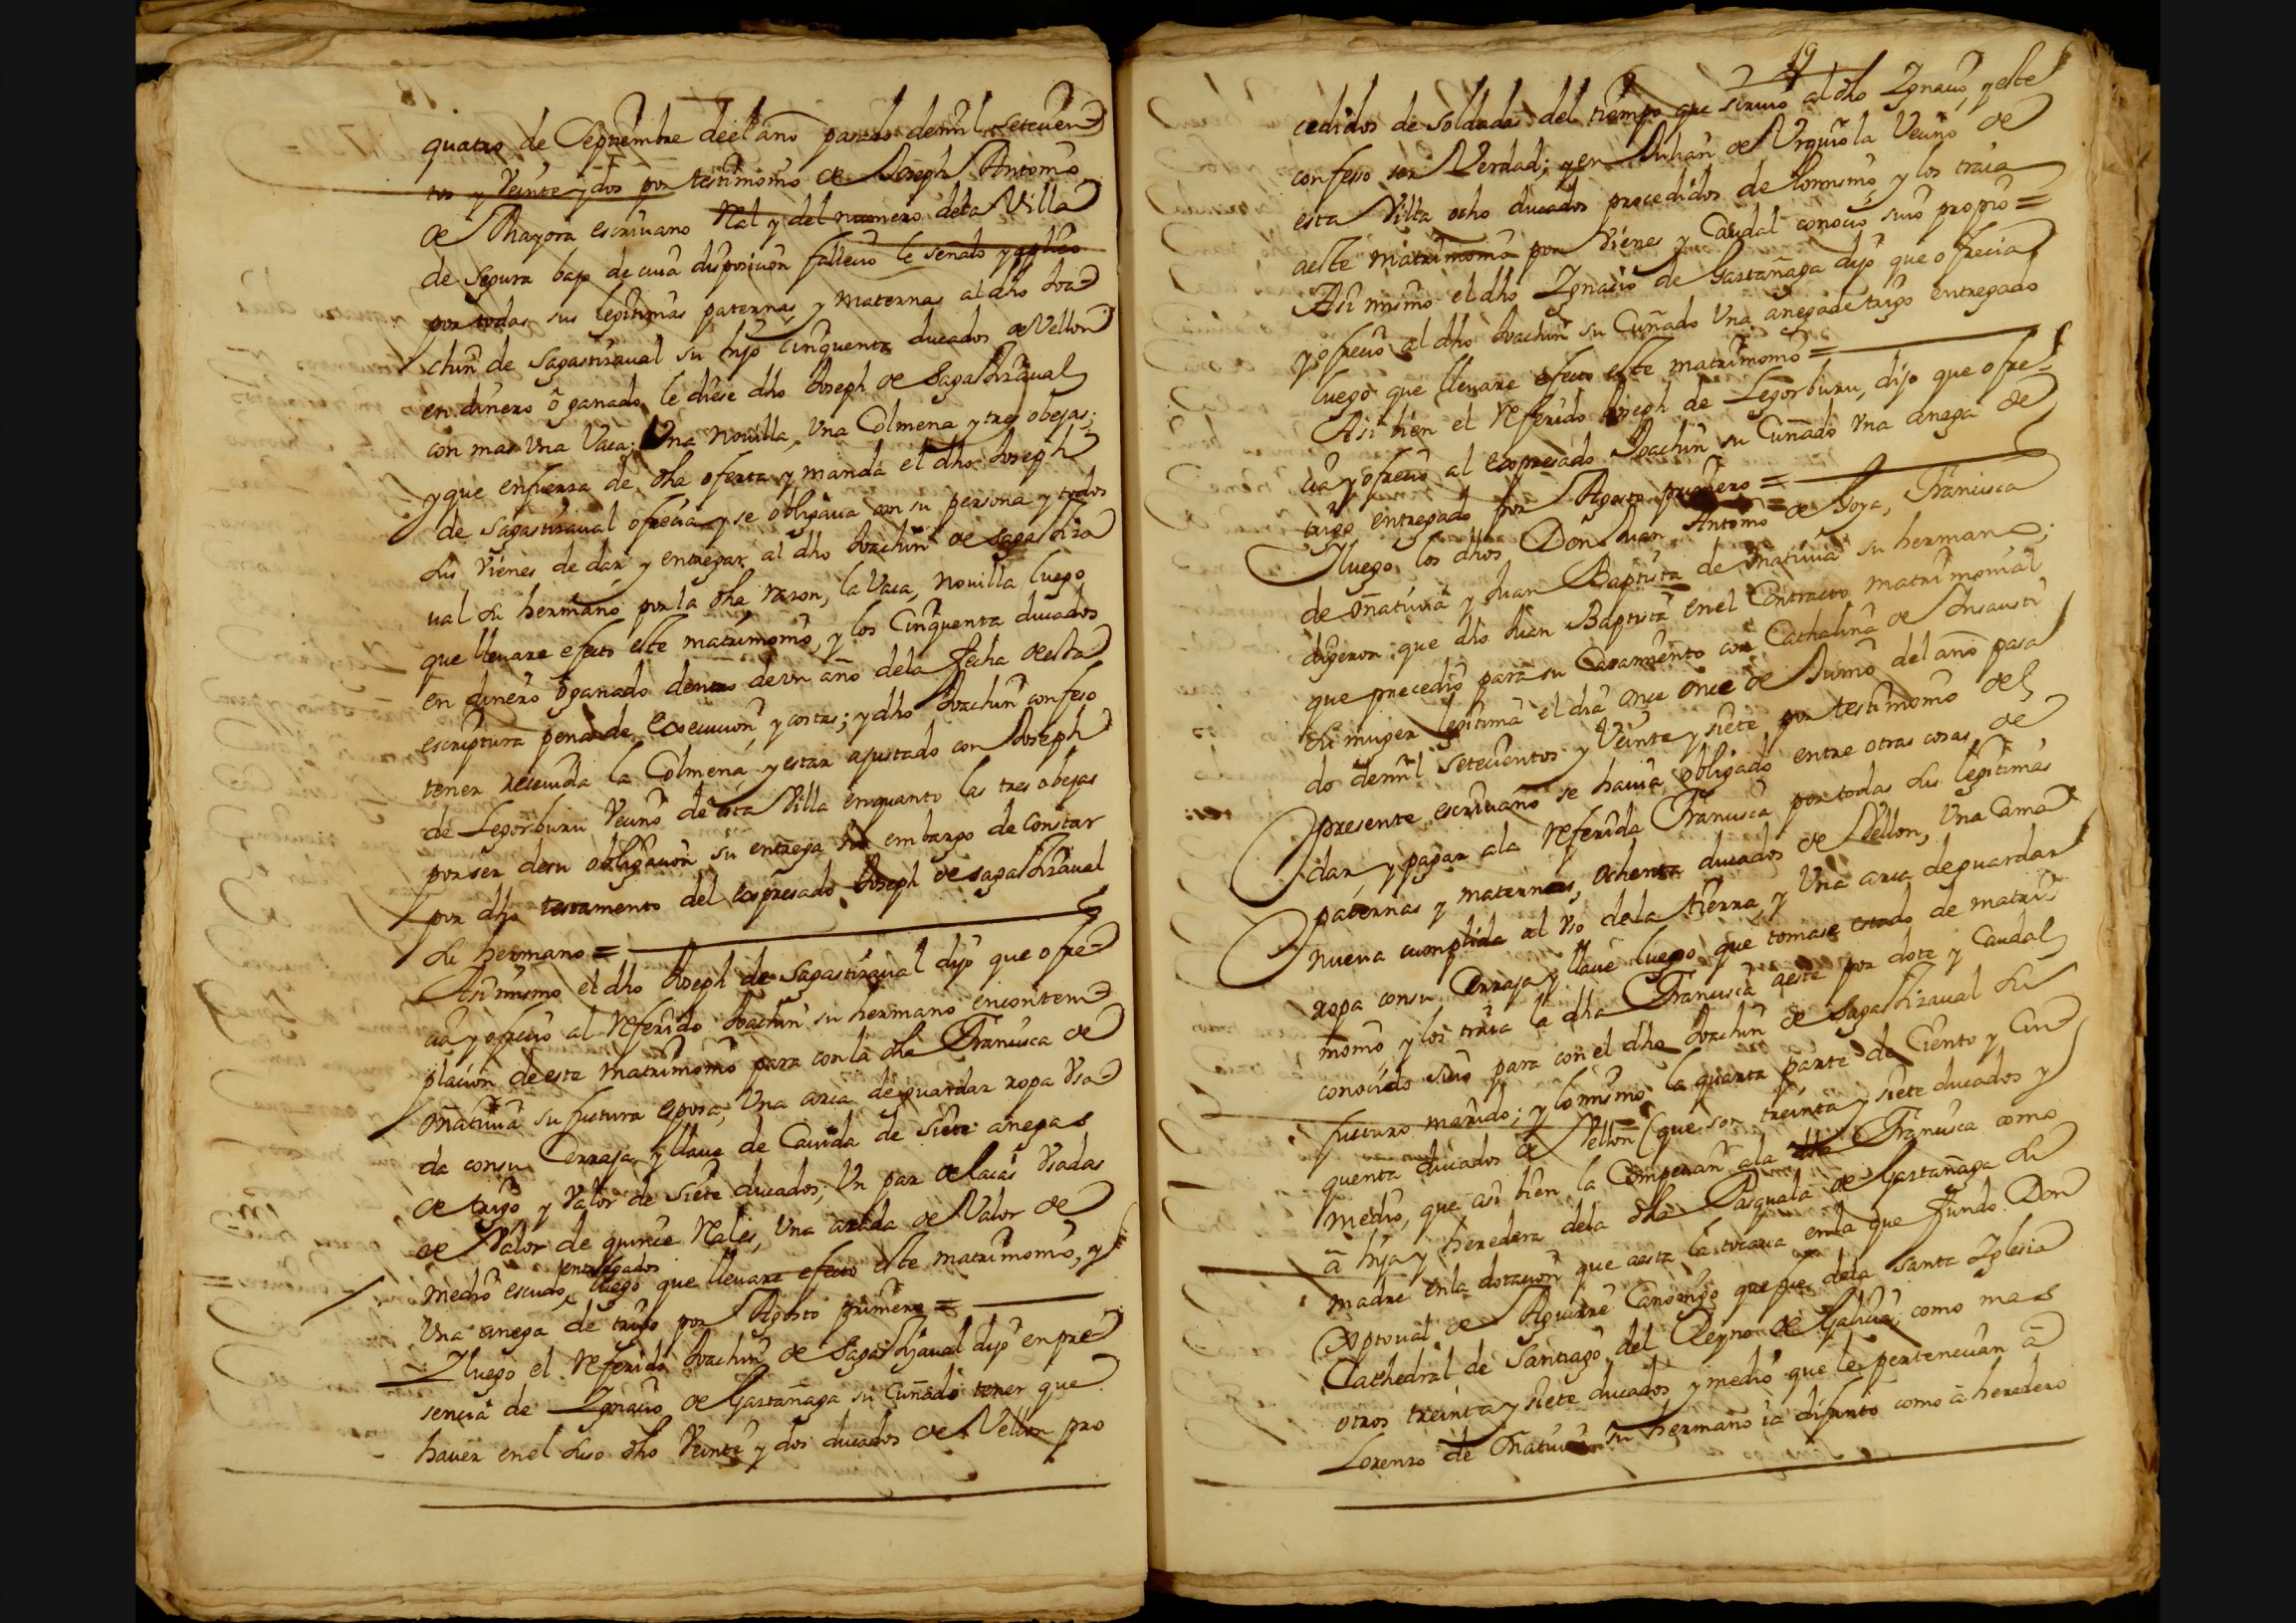 quatro de Septiembre deel año pasado demil setecien
tos y Veinte y dos por testimonio de Joseph Antonio
de Mayora escriuano Real y del numero dela Villa
de Segura bajo de cuia disposicion fallecio le señalo y aplico
por todas sus legitimas paternas y maternas al dho Joa
chin de Sagastizaual su hijo Cinquenta ducados de Vellon
en dinero ô ganado le diese dho Joseph de Sagastizaual
con mas Vna Vaca; Vna nouilla, Vna Colmena y tres obejas;
y que enfuerza de dha oferta y manda el dho Joseph
de Sagastizaual ofrecia y se obligaua con su persona y todos
sus Vienes de dar y entregar al dho Joachin de Sagastiza
ual su hermano por la dha razon, la Vaca, nouilla luego
que lleuare efecto este matrimonio, y los Cinquenta ducados
en dinero ô ganado dentro de vn año dela fecha de esta
escriptura pena de execucion y costas; y dho Joachin confeso
tener reciuida la Colmena y estar ajustado con Joseph
de Legorburu Vecino de esta Villa enquanto las tres obejas
por ser desu obligacion su entrega sin embargo de Constar
por dho testamento del expresado Joseph de Sagastizaual
su hermano =
Asimismo el dho Joseph de Sagastizaual dijo que ofre
cia y ofrecio al referido Joachin su hermano encontem
placion de este matrimonio para con la dha Francisca de
Oñatiuia su futura esposa, Vna arca de guardar ropa Vsa
da consu Cerraja y llaue de Cauida de Siete anegas
de trigo y Valor de siete ducados; Vn par de layas Vsadas
de Valor de quince Reales, Vna azada de Valor de
entregados
medio escudo, luego que lleuare efecto este matrimonio, y
Vna anega de trigo por Agosto primero =
Iluego el referido Joachin de Sagastizaual dijo en pre
sencia de Ignacio de Gastañaga su Cuñado tener que
hauer enel suso dho Veinte y dos ducados de Vellon pro
19
cedidos de Soldadas del tiempo que siruio al dho Ignacio, y este
confeso ser Verdad; y en Julian de Vrquiola Vecino de
esta Villa ocho ducados procedidos de lomismo y los traia
aeste matrimonio por Vienes y Caudal conocido suio propio =
Asi mismo el dho Ignacio de Gastañaga dijo que ofrecia
y ofrecio al dho Joachin su Cuñado Vna anega de trigo entregado
luego que lleuare efecto este matrimonio =
Asi bien el referido Joseph de Legorburu, dijo que ofre
cia y ofrecio al expresado Joachin su Cuñado Vna anega de
trigo entregado por Agosto primero =
Iluego los dhos Don Juan Antonio de Goya, Francisca
de Oñatiuia y Juan Baptista de Oñatiuia su hermano;
digeron: que dho Juan Baptista enel Contracto matrimonial
que precedio para su Casamiento con Cathalina de Insausti
su muger legitima el dia once once de Junio del año pasa
do demil setecientos y Veinte y siete por testimonio del
presente escriuano se hauia obligado entre otras cosas de
dar, y pagar ala referida Francisca por todas sus legitimas
paternas y maternas, ochenta ducados de Vellon, Vna Cama
nueua cumplida al Vso dela tierra, y Vna arca de guardar
ropa consu Cerraja y llaue luego que tomase estado de matri
monio y los traia la dha Francisca aeste por dote y Caudal
conocido suio para con el dho Joachin de Sagastizaual su
futuro marido; y lomismo la quarta parte de Ciento y Cin
quenta ducados de Vellon (que son treinta y siete ducados y
medio, que asi bien la Competian ala dha Francisca como
â hija y heredera dela dha Pasquala de Gastañaga su
madre enla dotacion que aesta la tocaua enla que fundo Don
Christoual de Aguirre Canonigo que fue dela Santa Iglesia
Cathedral de Santiago del Reyno de Galicia; como mas
otros treinta y siete ducados y medio que le pertenecian â
Lorenzo de Oñatiuia su hermano ia difunto como â heredero